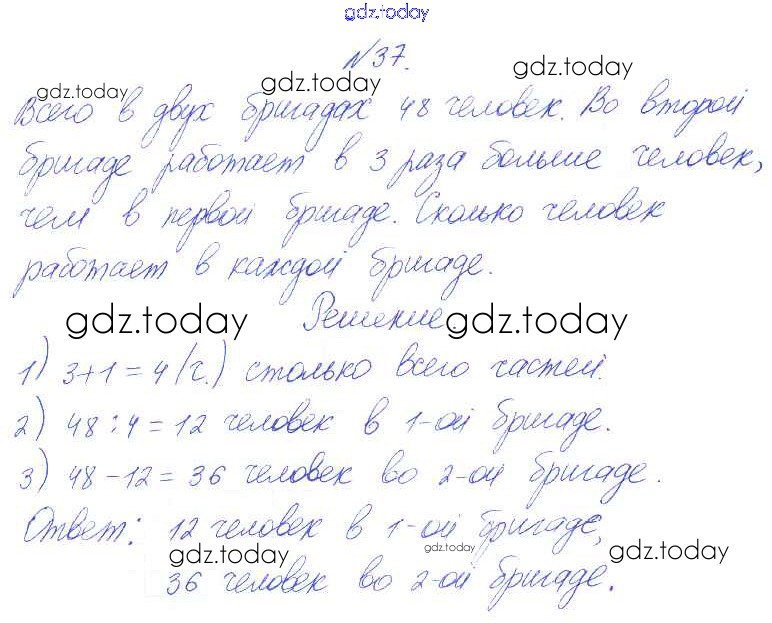 gdz.today
№37.
gdz.today gdz.today gdz.today
Всего в двух бригадах 48 человек. Во второй
бригаде работает в 3 раза больше человек,
чем в первой бригаде. Сколько человек
работает в каждой бригаде.
Решение.
gdz.today gdz.today
1) 3+1=4 (ч.) столько всего частей.
2) 48:4=12 человек в 1-ой бригаде.
3) 48-12=36 человек во 2-ой бригаде.
Ответ: 12 человек в 1-ой бригаде,
gdz.today gdz.today gdz.today
36 человек во 2-ой бригаде.